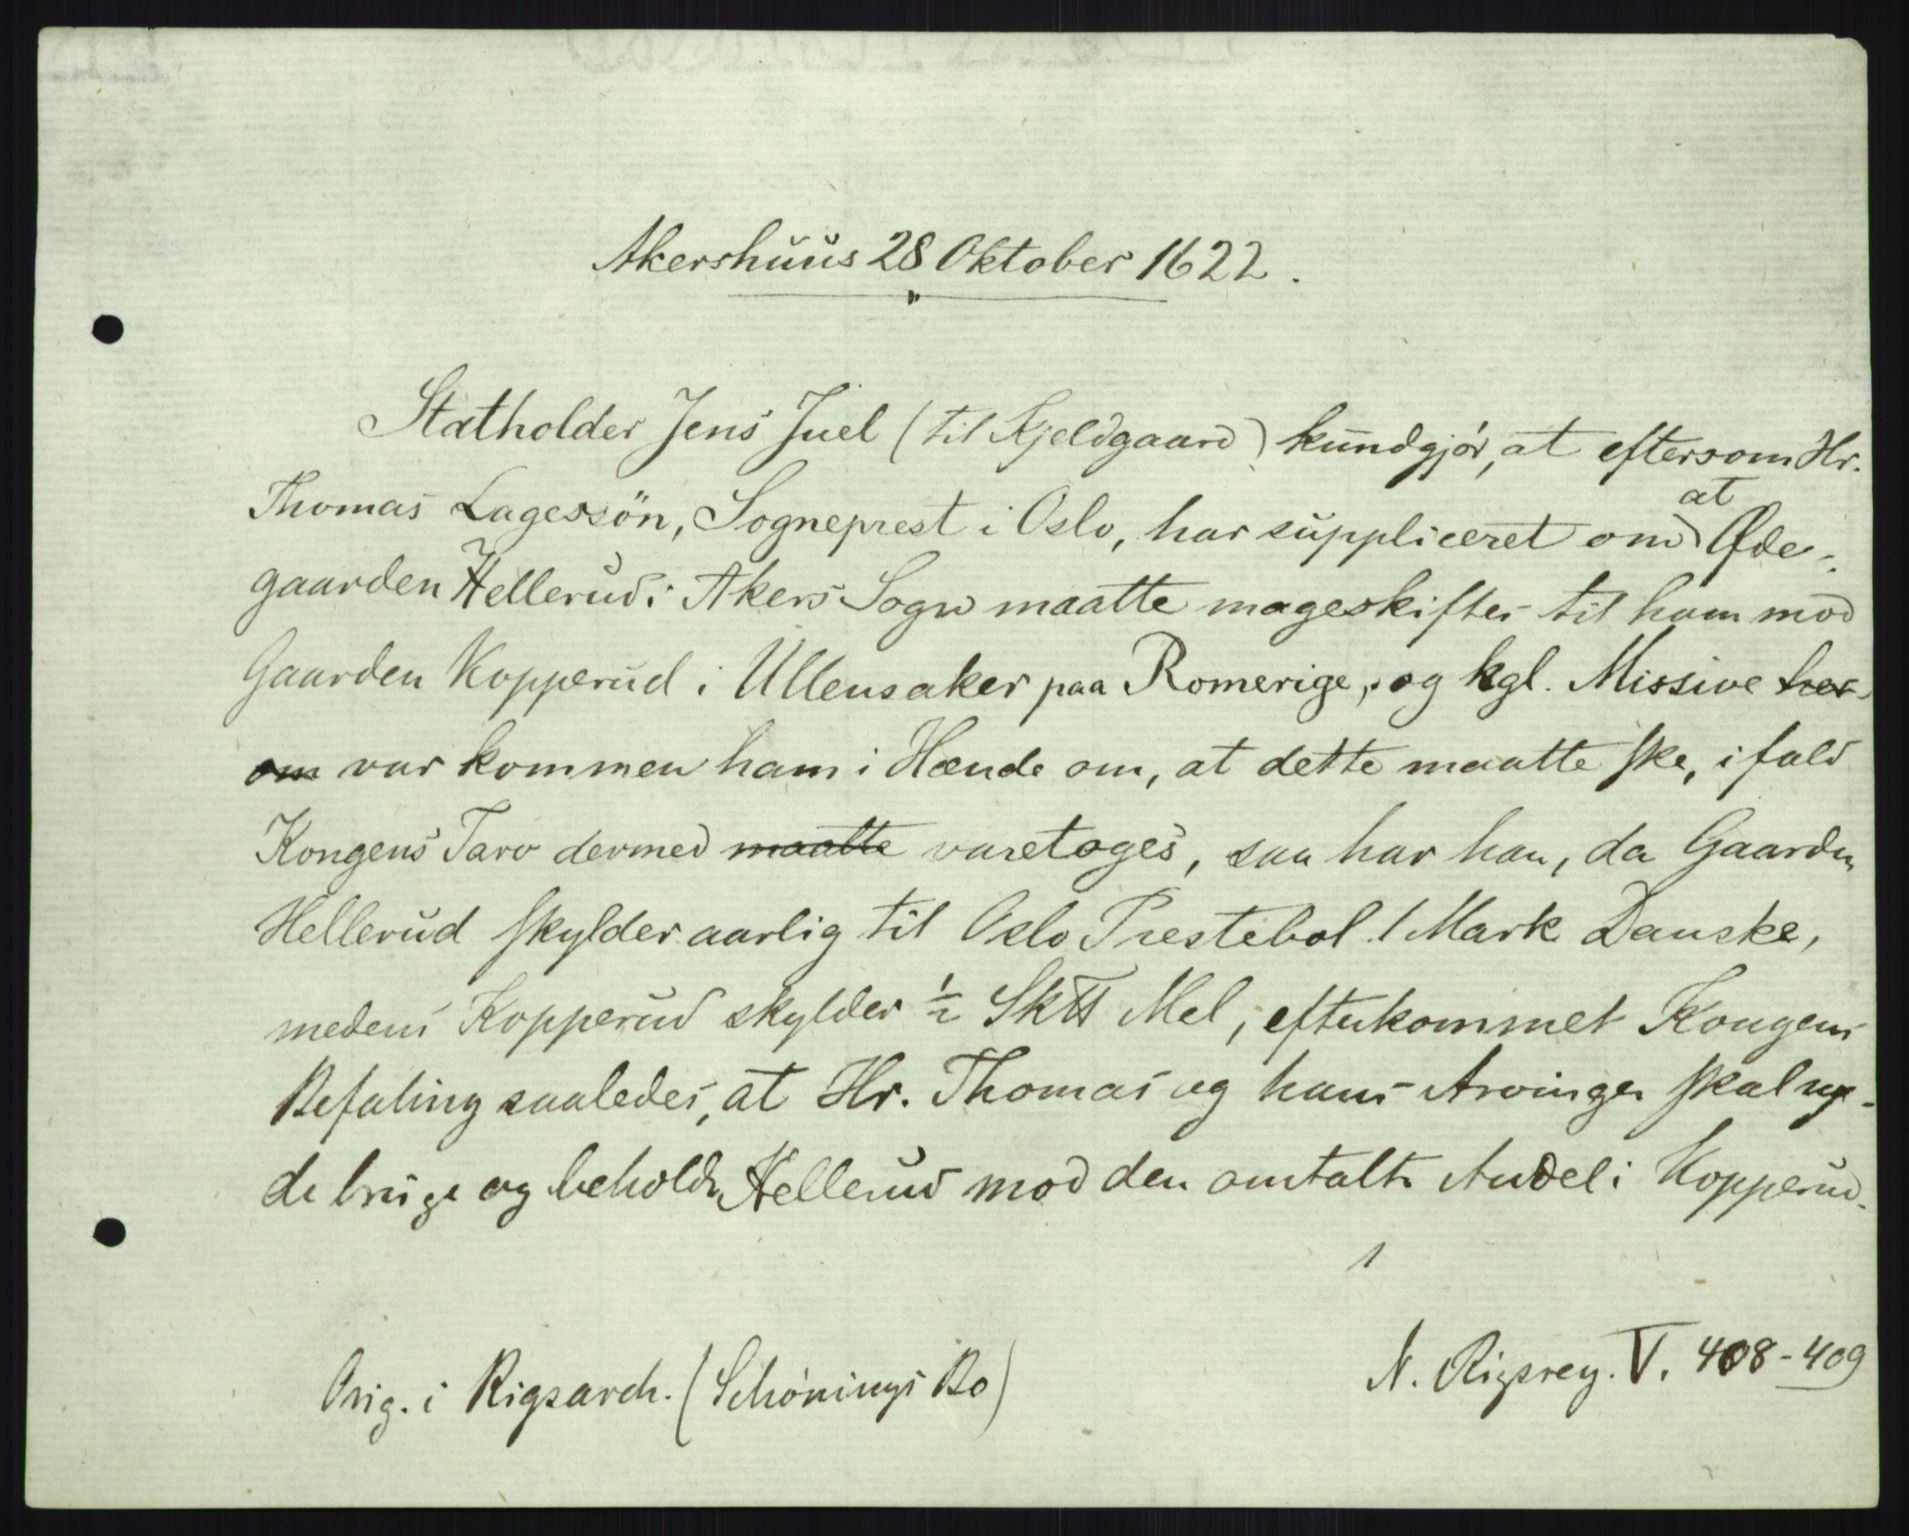 Akershuus 28 Oktober 1622.
Statholder Jens Juel (til Kjeldgaard) kundgjør, at eftersom Hr.
Thomas Lagessön, Sogneprest i Oslo, har suppliceret om at Øde-
gaarden Hellerud i Akers Sogn maatte mageskiftes til ham mod
Gaarden Kopperud i Ullensaker paa Romerige, og kgl. Missive her-
om var kommen ham i Hænde om, at dette maatte ske, ifald
Kongens Tarv dermed maatte varetoges, saa har han, da Gaarden
Hellerud skylder aarlig til Oslo Prestebol 1 Mark Danske,
medens Kopperud skylder ½ Sk℔ Mel, efterkommet Kongens
Befaling saaledes, at Hr. Thomas og hans Arvinger skal ny-
de bruge og beholde Hellerud mod den omtalte Andel i Kopperud.
Orig. i Rigsarch. (Schönings Bo)
N. Rigsreg. V. 408-409